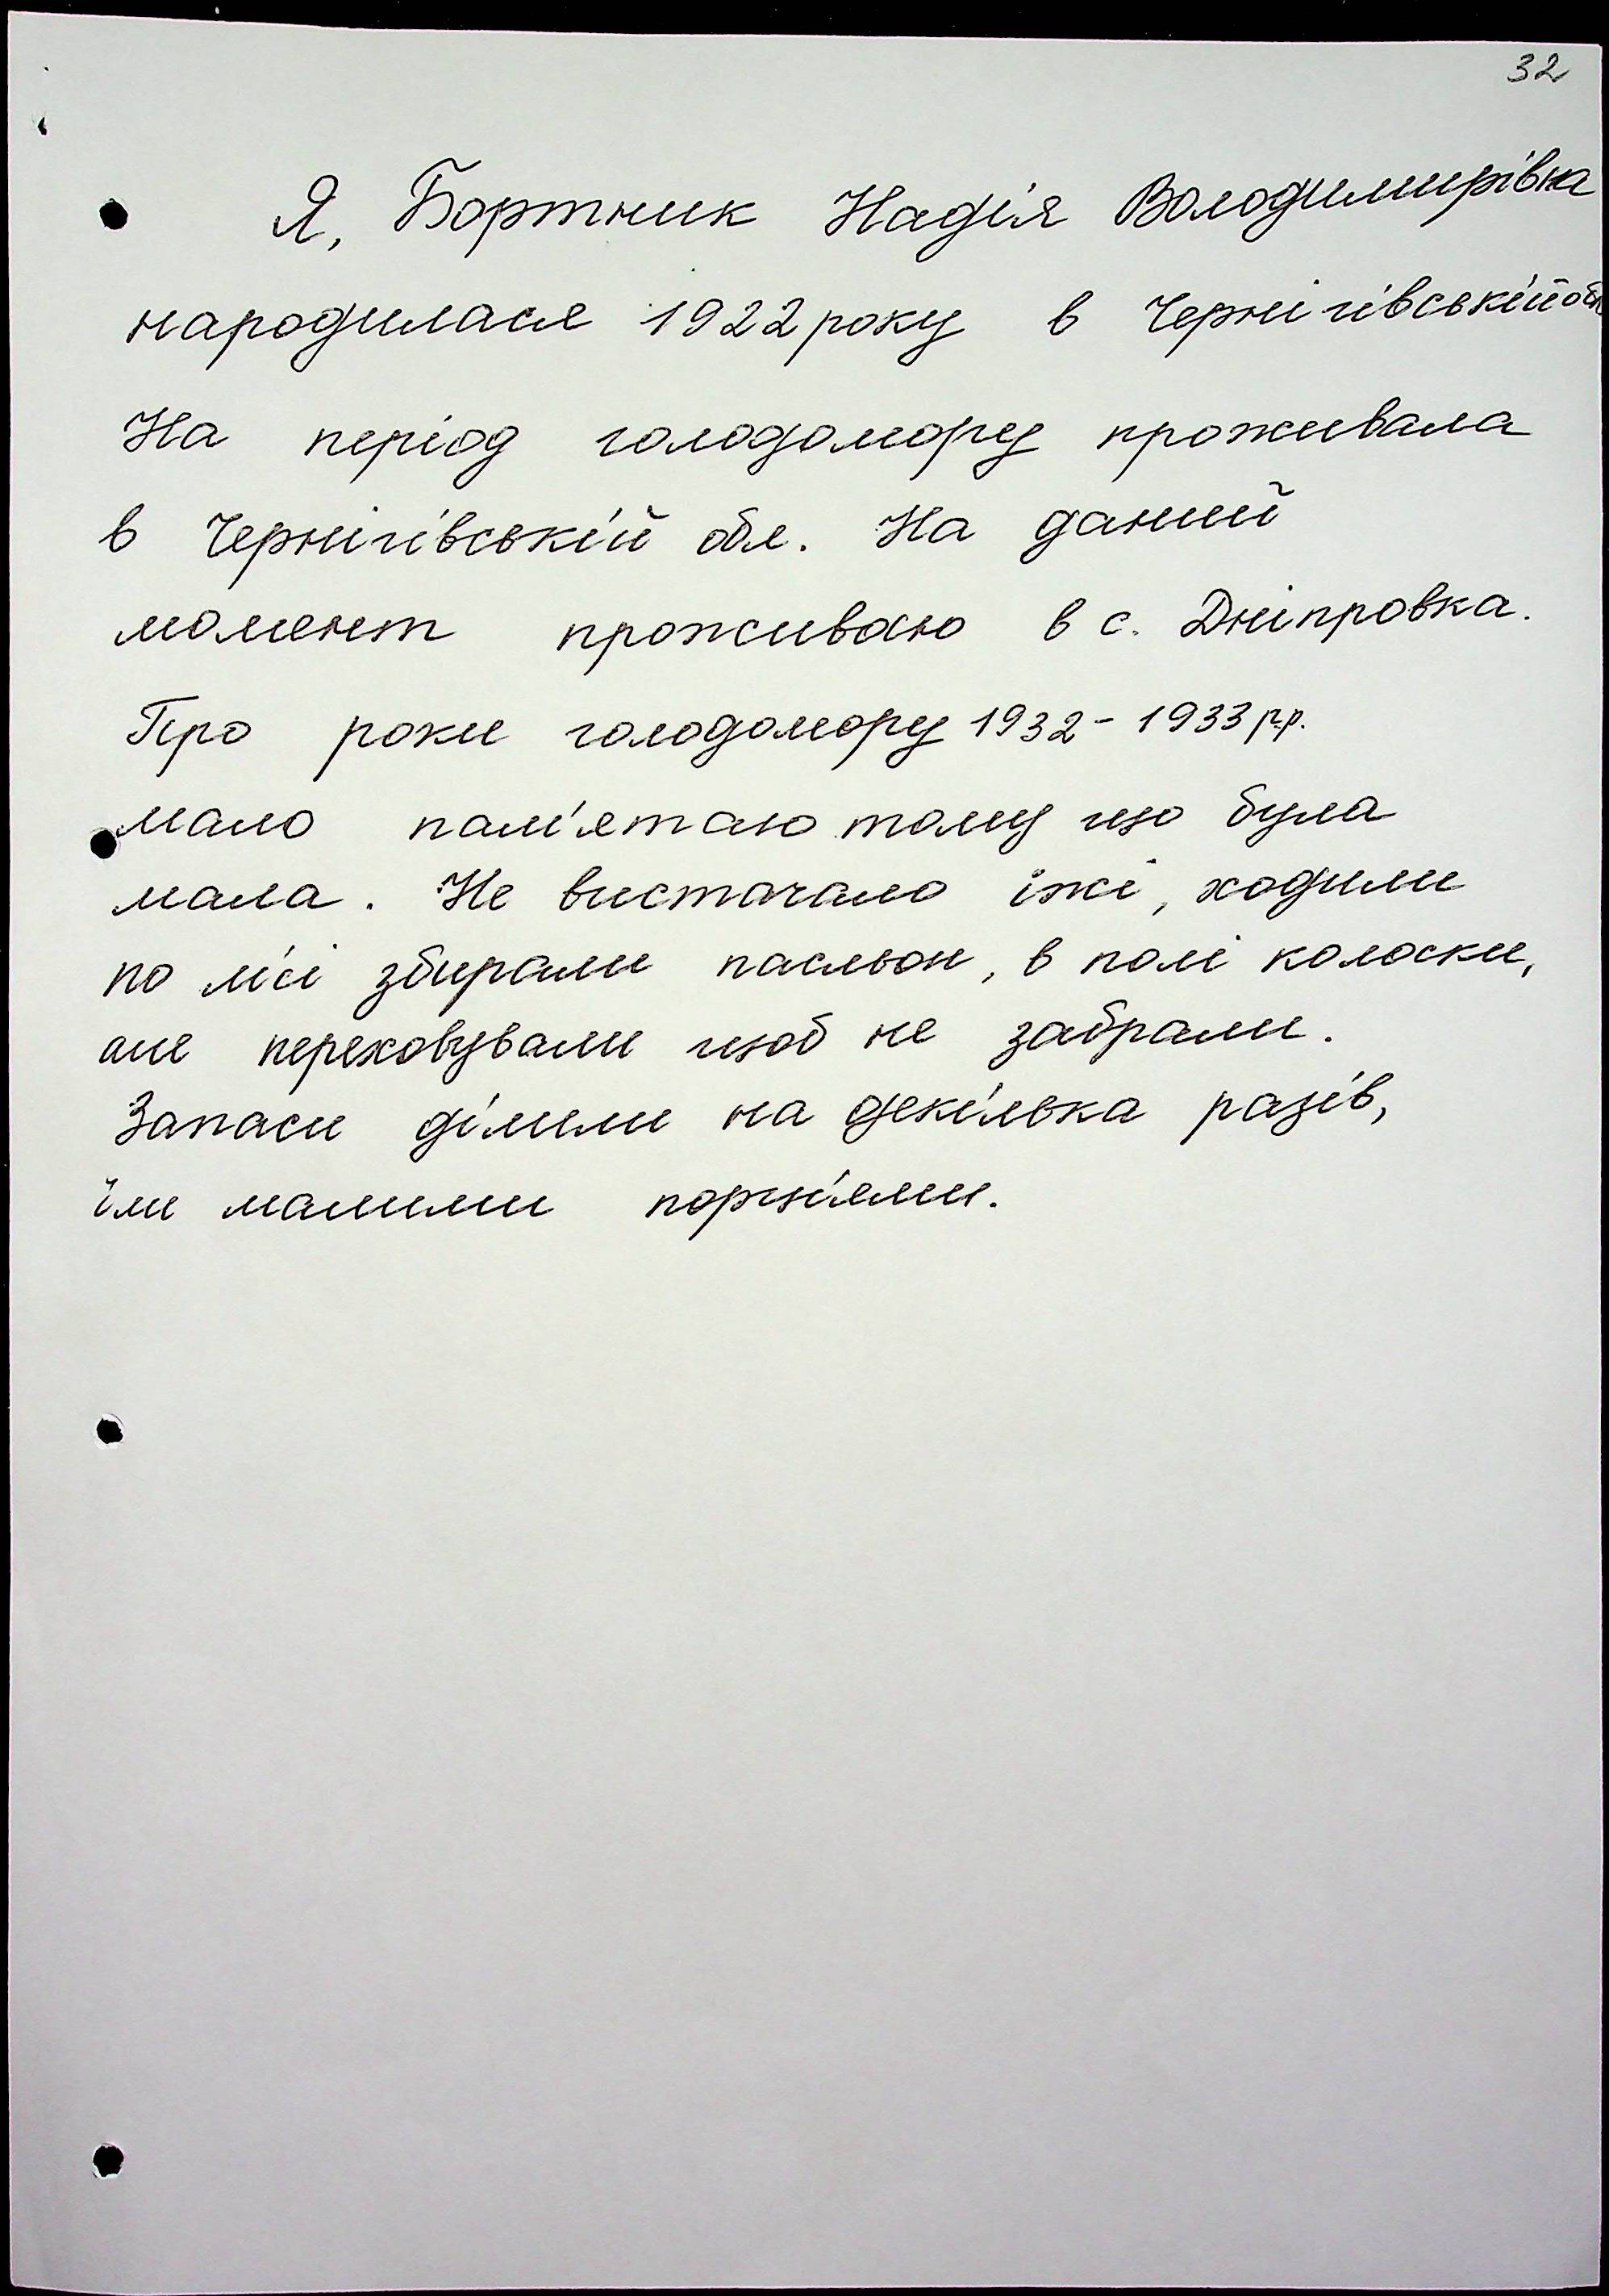 32
Я, Бортник Надія Володимирівна
народилася 1922 року в Чернігівській обл
На період голодомору проживала
в Чернігівській обл. На даний
момент проживаю в с. Дніпровка.
Про роки голодомору 1932-1933 р.р.
мало пам'ятаю тому що була
мала. Не вистачало їжі, ходили
по лісі збирали пасльон, в полі колоски,
але переховували щоб не забрали.
Запаси ділили на декілька разів,
їли малими порціями.